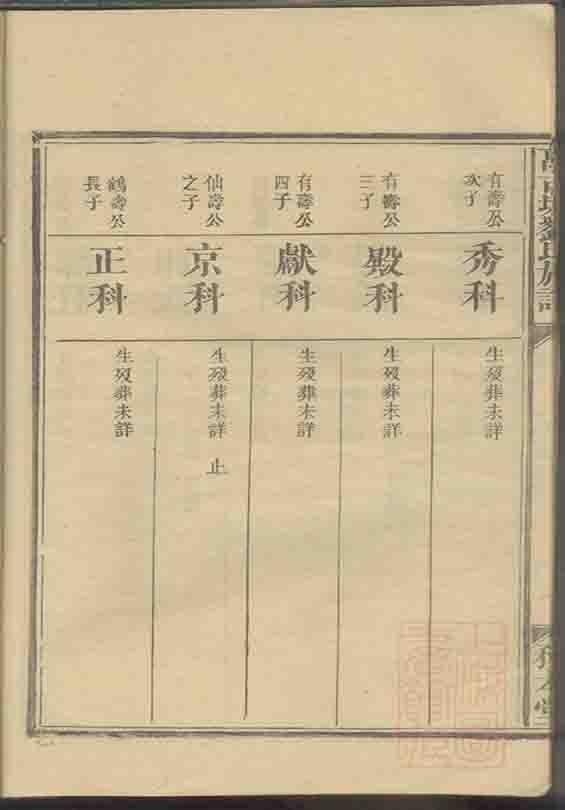 有壽公
次子
秀科
生歿葬未詳
有壽公
三子
殿科
生歿葬未詳
有壽公
四子
獻科
生歿葬未詳
仙壽公
之子
京科
生歿葬未詳 止
鶴壽公
長子
正科
生歿葬未詳